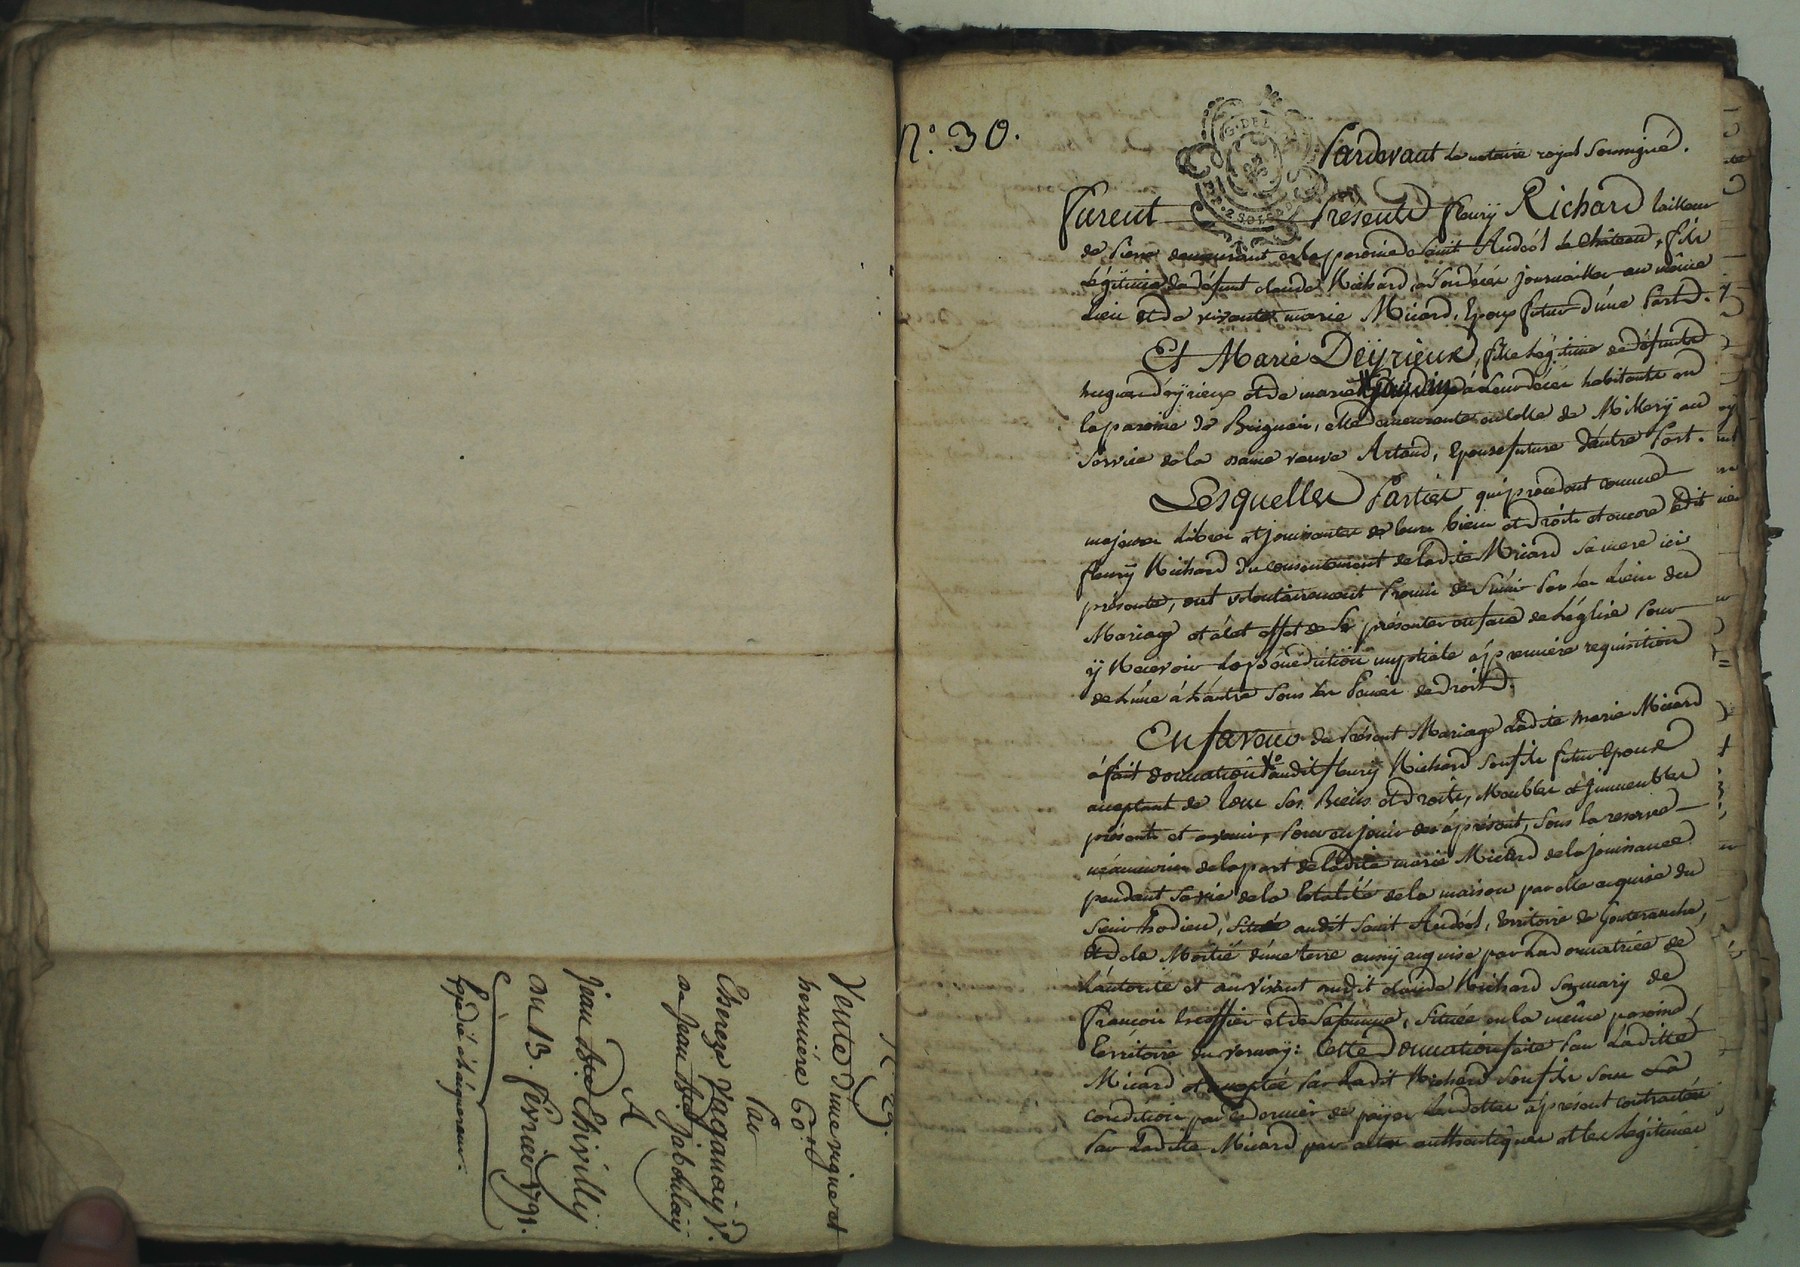 N. 29.
Vente d'une vigne et
hermière 60.#
Par
Thereze Vaganay V.e
de Jean Bte. Jabdulay
A
Jean Bte. Chirilly
du 13. fevrier 1791.
Expedié à l'acquereur.
N.° 30.
G. DEL
2 SOLS
Pardevant le notaire royal soussigné.
Furent Presents fleury Richard tailleur
de Pierre demeurant en la paroisse de Saint Andéol le Château, fils
légitime de défunt claude Richard à son décès journailler au même
lieu et de vivante marie Micard, Epoux futur d'une Part.
Et Marie Deyrieux, fille légitime de défunts
hugues déyrieux et de marie à leur décès habitants en
la paroisse de Brignais, elle demeurante en celle de Millery au
service de la dame veuve Artaud, Epouse future d'autre Part.
Lesquelles Parties qui procedent comme
majeures libres et jouissantes de leurs biens et droits et encore ledit
fleury Richard du consentement de ladite Micard sa mere ici
présente, ont volontairement Promis de s'unir Par les Liens du
Mariage et à cet effet de se présenter en face de l'église Pour
y Recevoir La Bénédiction nuptiale à première requisition
de l'une à l'autre sous les Peines de droit.
En faveur du Présent Mariage Ladite marie Micard
à fait donnation audit fleury Richard son fils futur Epoux
acceptant de tous ses Biens et droits, Meubles et Jmmeubles
présents et avenir, Pour en jouir dès àprésent, sous la reserve
néanmoins de la part de ladite marie Micard de la jouissance
pendant sa vie de la totalité de la maison par elle acquise du
sieur hodieu, située audit saint Andéol, territoire de Gouteranche,
Et de la Moitié d'une terre aussy acquise par la donnatrice de
l'autorité et au vivant audit claude Richard son mary de
françois Greffier et de sa femme, située en la même paroisse,
territoire du vernay: cette Donnation faite Par Laditte
Micard et acceptée Par Ledit Richard son fils sous La
condition par ce dernier de payer les dettes àprésent contractées
Par Ladite Micard par actes authentiques et les légitimes